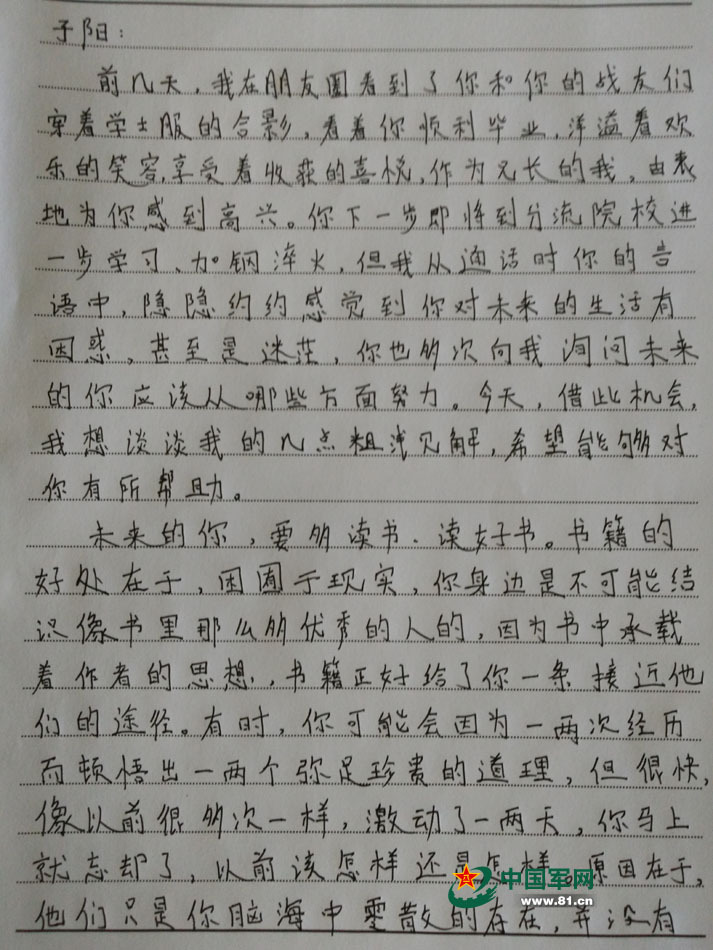 子阳：
前几天，我在朋友圈看到了你和你的战友们
穿着学士服的合影，看着你顺利毕业，洋溢着欢
乐的笑容，享受着收获的喜悦，作为兄长的我，由衷
地为你感到高兴。你下一步即将到分流院校进
一步学习、加钢淬火，但我从通话时你的言
语中，隐隐约约感觉到你对未来的生活有
困惑，甚至是迷茫，你也多次向我询问未来
的你应该从哪些方面努力。今天，借此机会，
我想谈谈我的几点粗浅见解，希望能够对
你有所帮助。
未来的你，要多读书、读好书。书籍的
好处在于，困囿于现实，你身边是不可能结
识像书里那么多优秀的人的，因为书中承载
着作者的思想，书籍正好给了你一条接近他
们的途径。有时，你可能会因为一两次经历
而顿悟出一两个弥足珍贵的道理，但很快，
像以前很多次一样，激动了一两天，你马上
就忘却了，以前该怎样还是怎样。原因在于，
他们只是你脑海中零散的存在，并没有
中国军网
www.81.cn